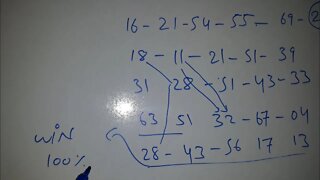 16 - 21 - 54 - 55 - 69 - 2
18 - 11 - 21 - 51 - 39
31 28 - 51 - 43 - 33
63 51 32 - 67 - 04
28 - 43 - 56 17 13
WIN
100%